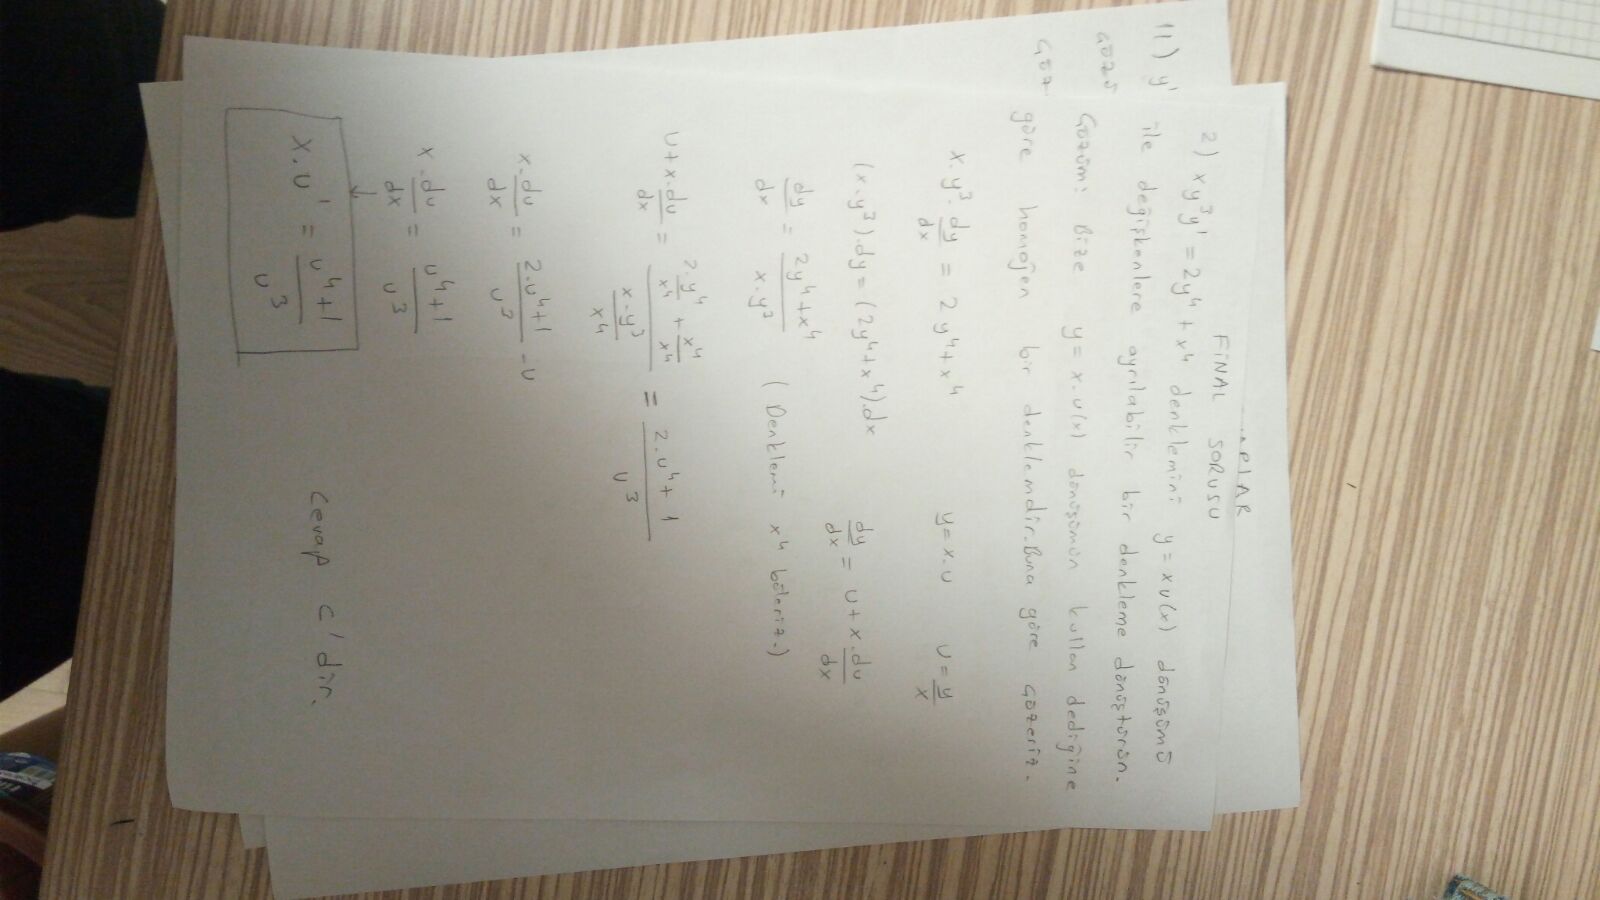 FİNAL SORUSU
2) xy³y' = 2y⁴ + x⁴ denklemini y = xu(x) dönüşümü
ile değişkenlere ayrılabilir bir denkleme dönüştürün.
Çözüm: Bize y = x.u(x) dönüşümün kullan dediğine
göre homojen bir denklemdir. Buna göre çözeriz.
x.y³.dy/dx = 2y⁴+x⁴ y=x.u u=y/x
(x.y³).dy=(2y⁴+x⁴).dx
dy/dx = u+x.du/dx
dy/dx = (2y⁴+x⁴)/(x.y³) (Denklemi x⁴ böleriz.)
u+x.du/dx = (2.y⁴/x⁴ + x⁴/x⁴)/(x.y³/x⁴) = (2.u⁴+1)/u³
x.du/dx = (2.u⁴+1)/u³ -u
x.du/dx = (u⁴+1)/u³
↓
x.u' = (u⁴+1)/u³
Cevap C'dir.
11) y'